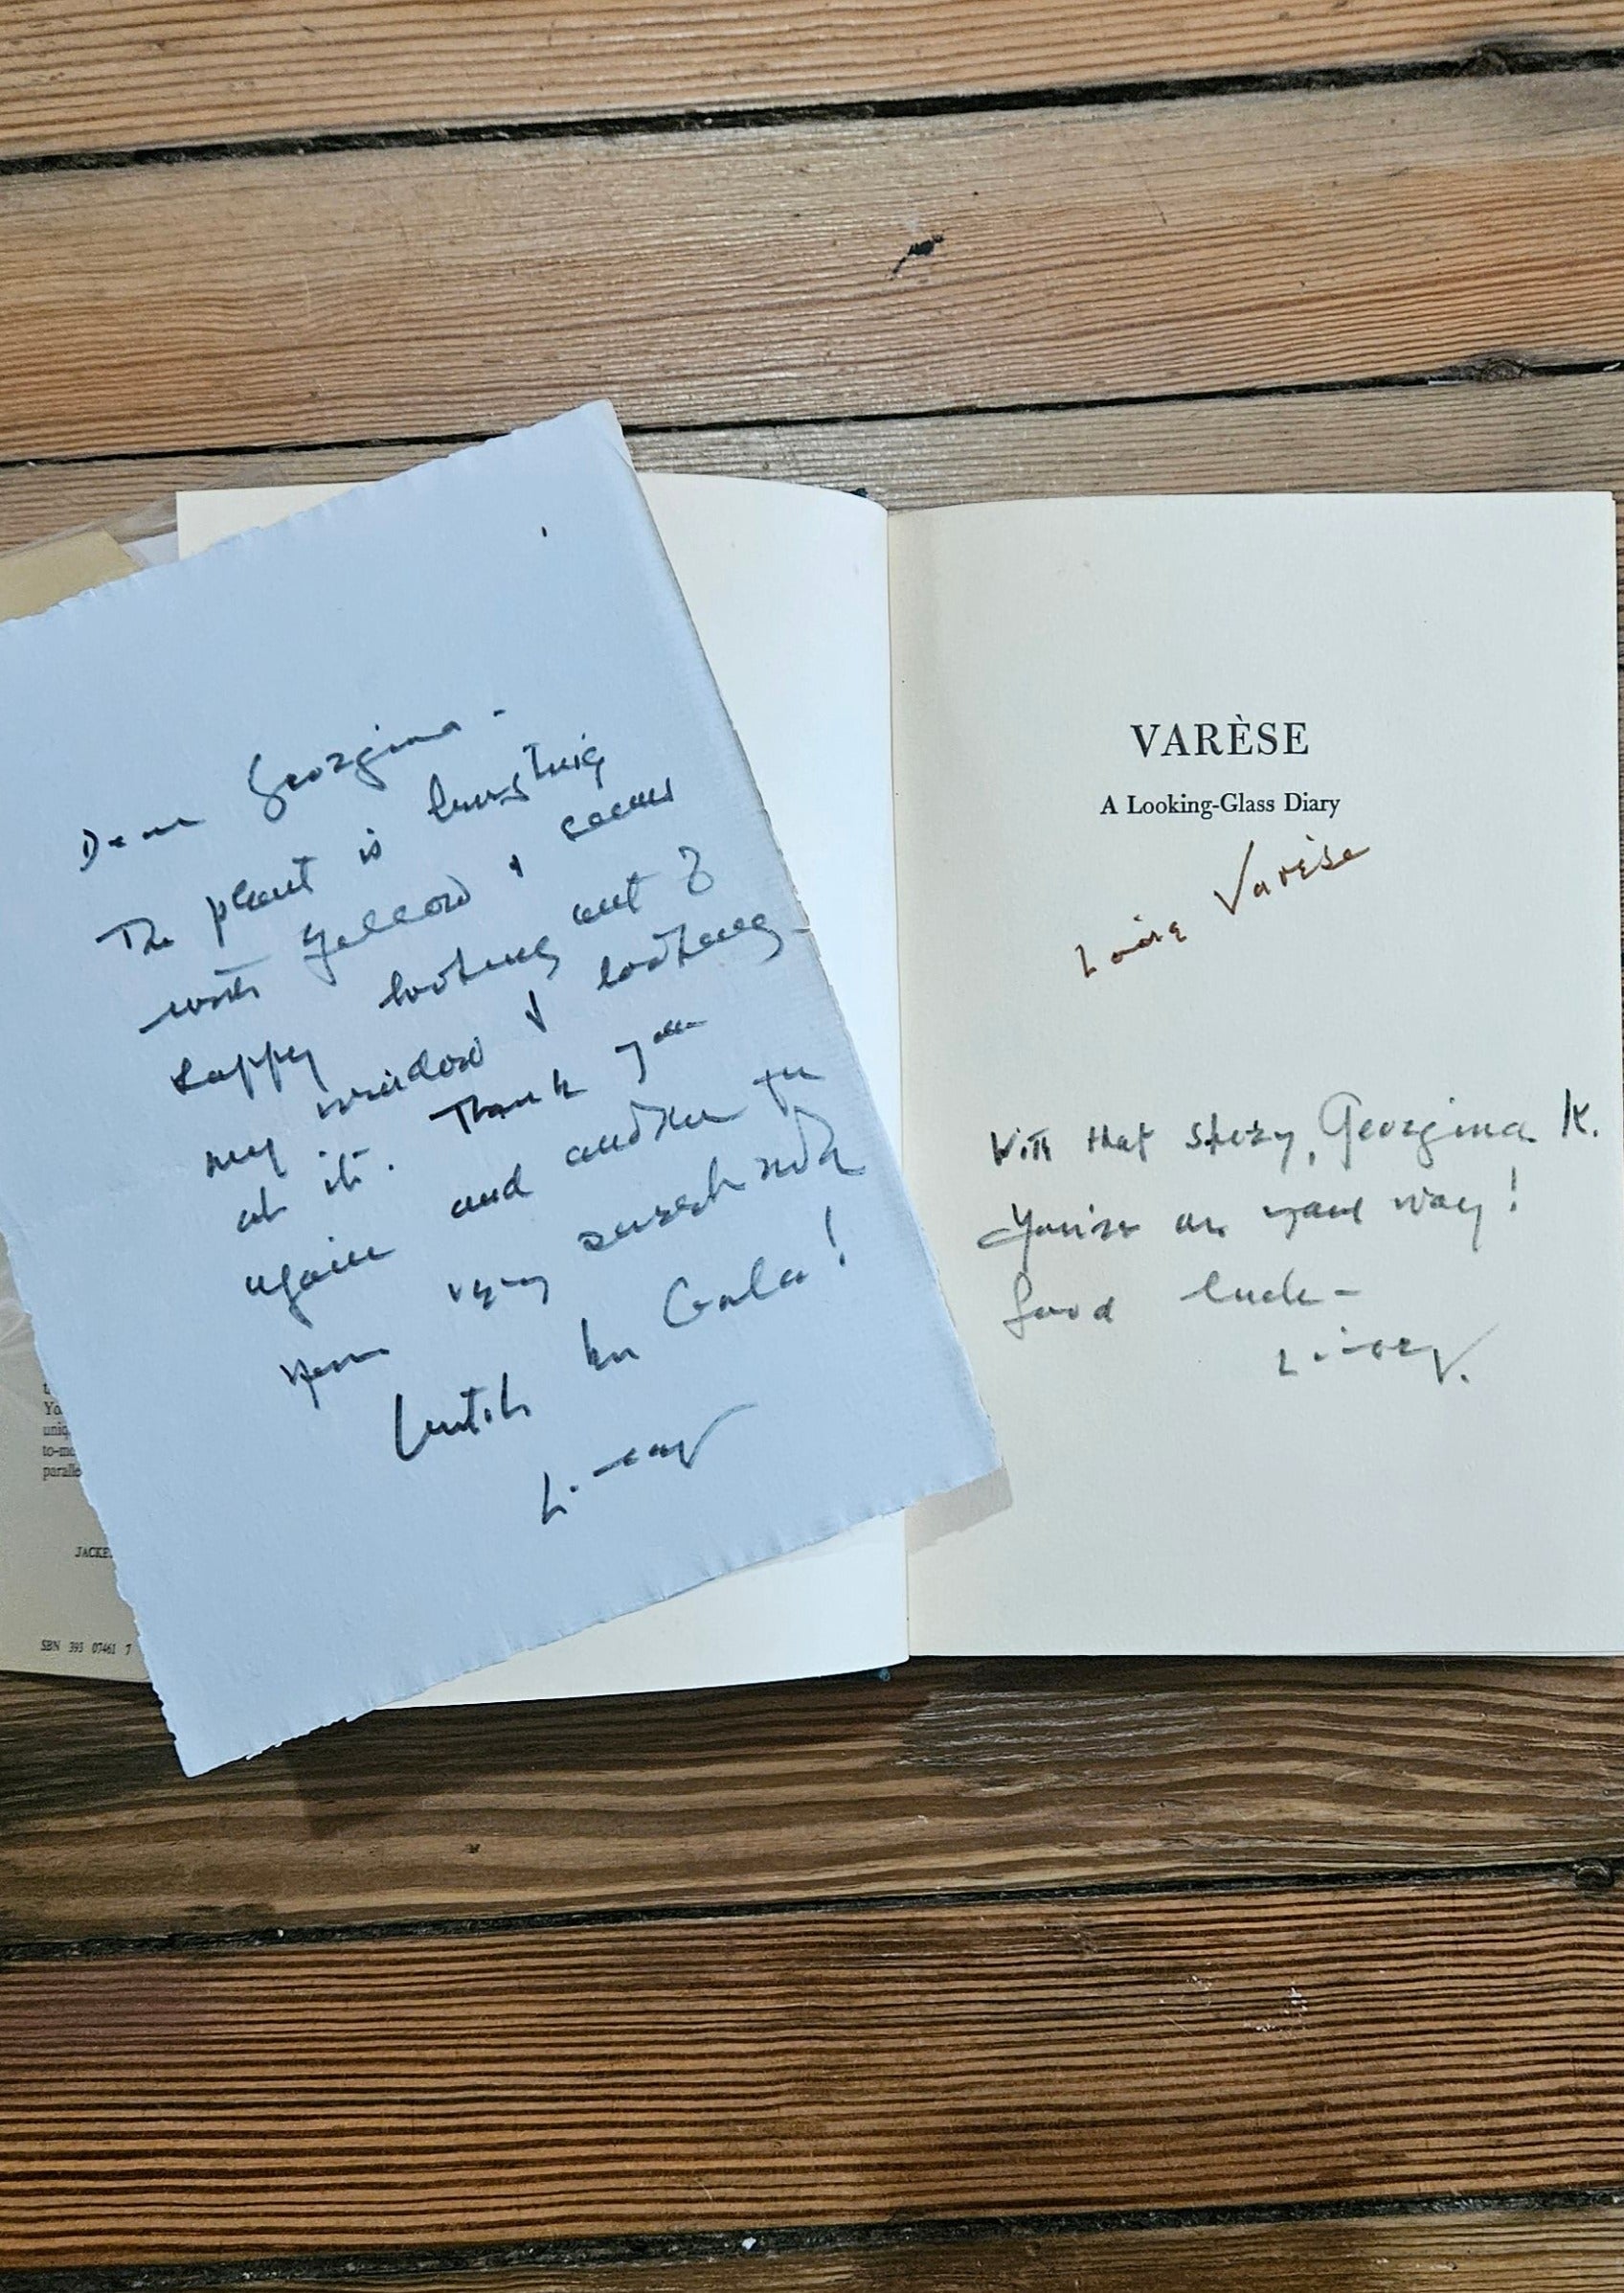 Dear Georgina -
The plant is bursting
with yellow & seems
happy looking out of
my window & looking
at it. Thank you
again and another for
your very
lunch in Gala!
VARÈSE
A Looking-Glass Diary
Louise Varèse
With that story, Georgina K.
You're on your way!
Good luck -
to-mo
paralle
JACKE
SBN 393 07461 7